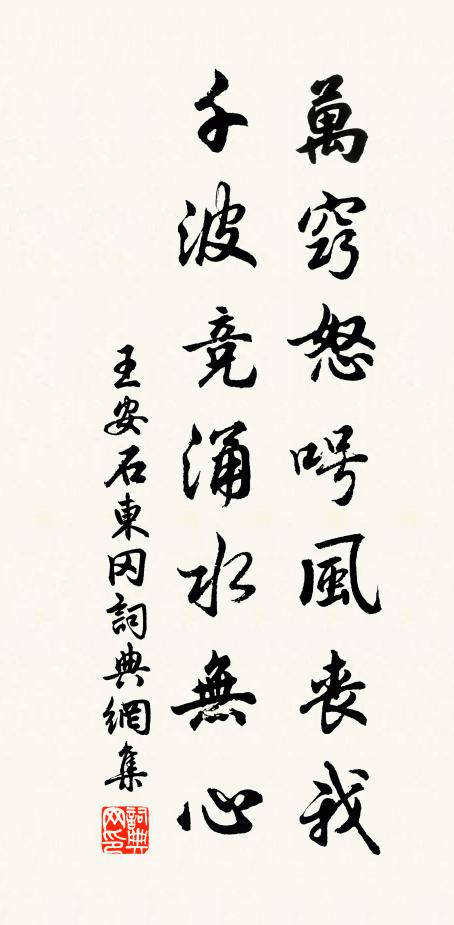 萬竅怒呺風喪我
千波竞涌水無心
王安石東冈詞典網集
詞典网印